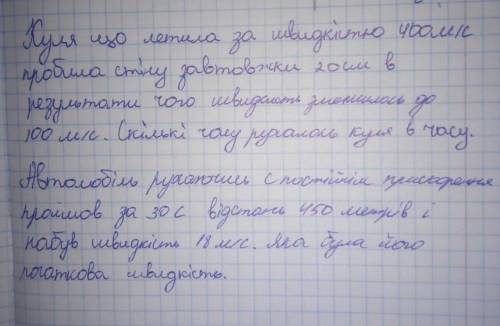 Куля що летила за швидкістю 400м/с
пробила стіну завтовжки 20см в
результати чого швидкість зменшилось до
100 м/с. Скількі часу рухалось куля в часу.
Автомобіль рухаючись с постійнім прискорення
пройшов за 30 с відстань 450 метрів і
набув швидкість 18 м/с. яка була його
початкова швидкість.